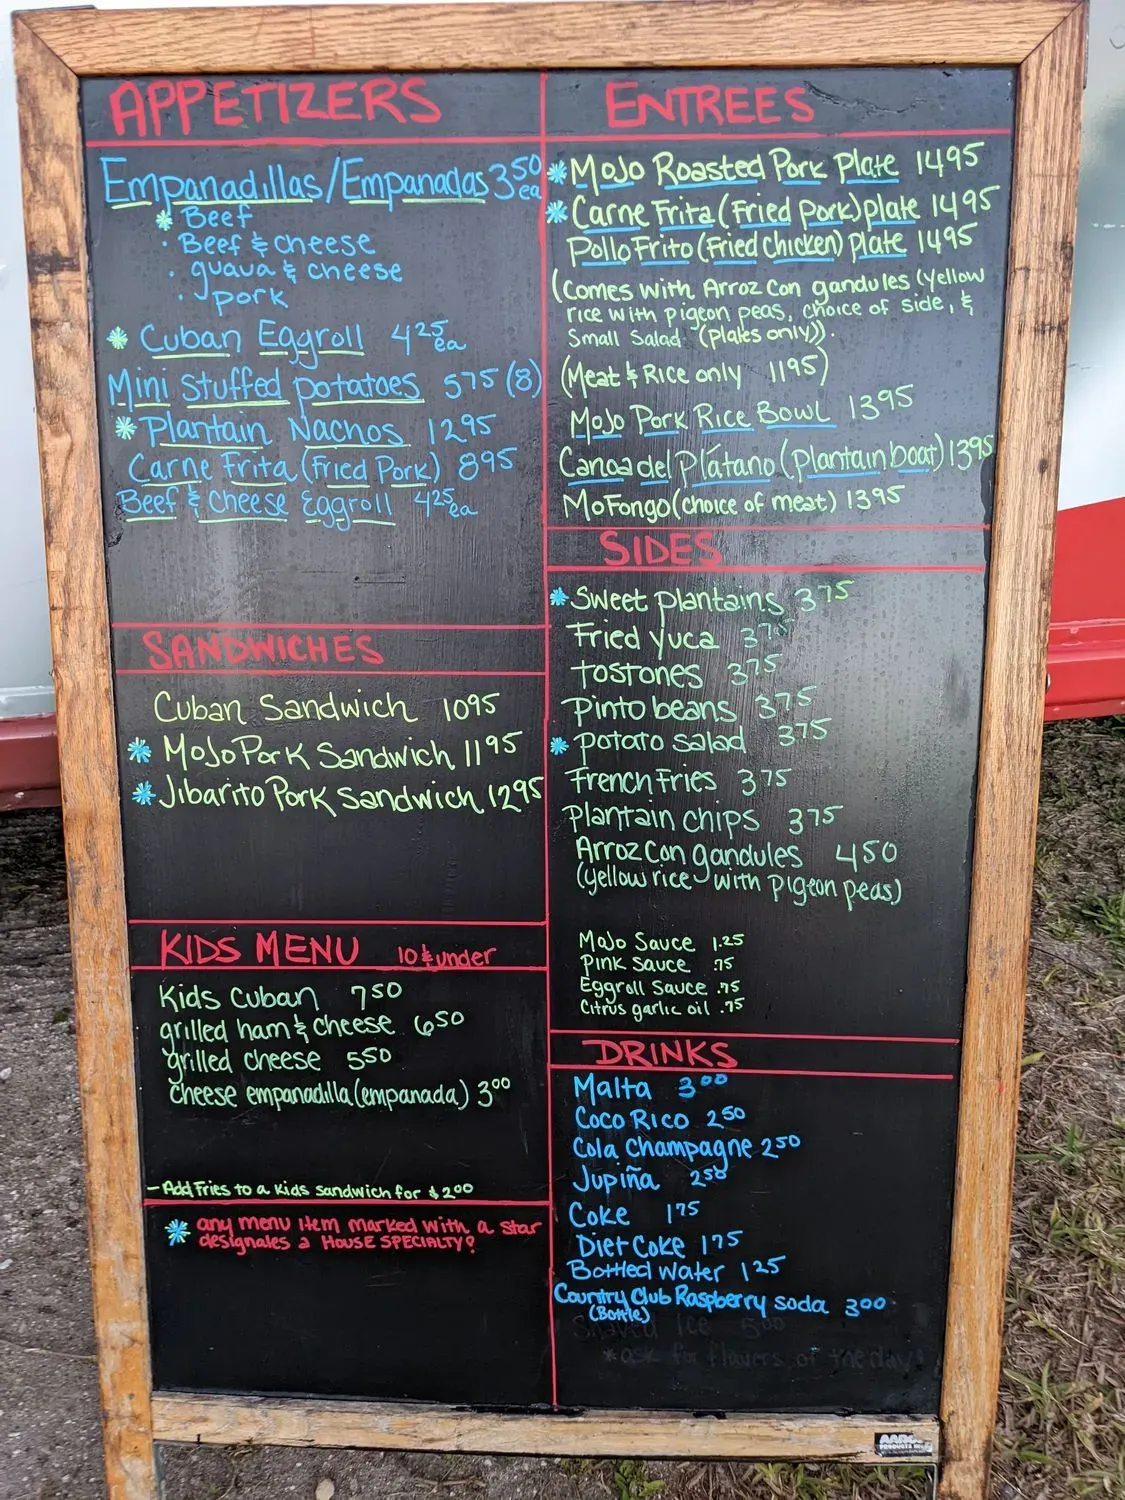 APPETIZERS
Empanadillas/Empanadas 3.50 ea
* Beef
· Beef & cheese
· guava & cheese
· pork
* Cuban Eggroll 4.25 ea
Mini Stuffed potatoes 5.75 (8)
* Plantain Nachos 12.95
Carne Frita (Fried Pork) 8.95
Beef & Cheese Eggroll 4.25 ea
SANDWICHES
Cuban Sandwich 10.95
* Mojo Pork Sandwich 11.95
* Jibarito Pork Sandwich 12.95
KIDS MENU 10 & under
Kids Cuban 7.50
grilled ham & cheese 6.50
grilled cheese 5.50
cheese empanadilla (empanada) 3.00
- Add Fries to a kids sandwich for $2.00
* any menu item marked with a star
designates a HOUSE SPECIALTY!
ENTREES
* Mojo Roasted Pork Plate 14.95
* Carne Frita (Fried Pork) plate 14.95
Pollo Frito (Fried Chicken) Plate 14.95
(Comes with Arroz Con gandules (yellow
rice with pigeon peas, choice of side, &
Small Salad (plates only)).
(Meat & Rice only 11.95)
Mojo Pork Rice Bowl 13.95
Canoa del Plátano (plantain boat) 13.95
Mofongo (choice of meat) 13.95
SIDES
* Sweet plantains 3.75
Fried yuca 3.75
tostones 3.75
Pinto beans 3.75
* potato salad 3.75
French Fries 3.75
Plantain chips 3.75
Arroz Con gandules 4.50
(yellow rice with pigeon peas)
Mojo Sauce 1.25
Pink Sauce .75
Eggroll Sauce .75
Citrus garlic oil .75
DRINKS
Malta 3.00
Coco Rico 2.50
Cola Champagne 2.50
Jupiña 2.50
Coke 1.75
Diet Coke 1.75
Bottled Water 1.25
Country Club Raspberry soda 3.00
(Bottle)
Shaved Ice 5.00
*ask for flavors of the day